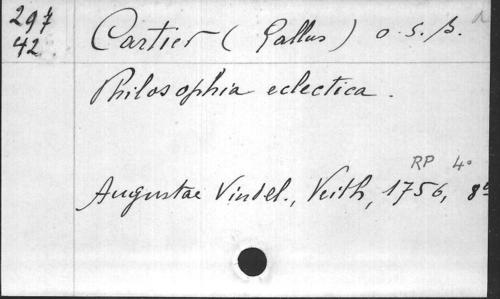 297 Cartier (Gallus) o. s. B.
42
Philosophia eclectica.
RP 4°
Augustae Vindel., Veith, 1756, 8°